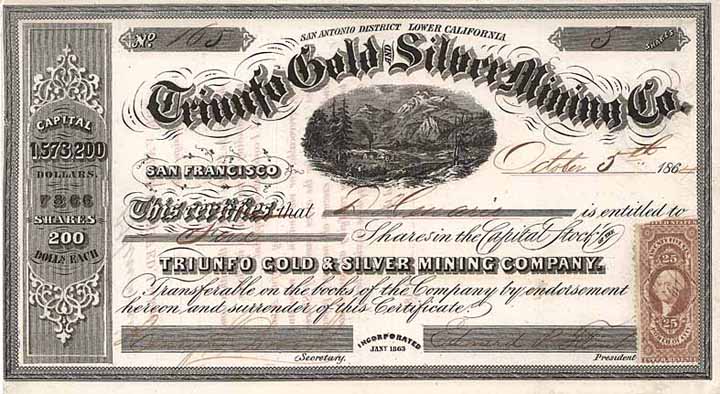 SAN ANTONIO DISTRICT LOWER CALIFORNIA
No. 165
5 SHARES
Triunfo Gold AND Silver Mining Co.
CAPITAL
1,573,200
DOLLARS.
7866
SHARES
200
DOLLS. EACH
SAN FRANCISCO October 5th 1864
This certifies that is entitled to
Five Shares in the Capital Stock of
TRIUNFO GOLD & SILVER MINING COMPANY.
Transferable on the books of the Company by endorsement
hereon and surrender of this Certificate.
INCORPORATED
JANY 1863
Secretary.
President
25
25